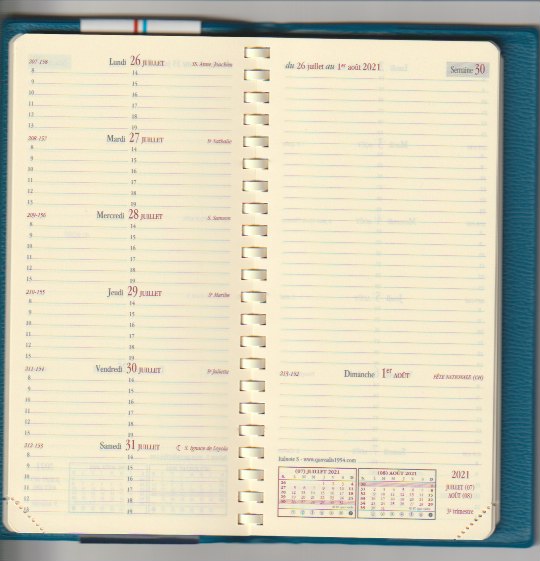 207-158 Lundi 26 JUILLET SS. Anne, Joachim
8 14
9 15
10 16
11 17
12 18
13 19
208-157 Mardi 27 JUILLET Se Nathalie
8 14
9 15
10 16
11 17
12 18
13 19
209-156 Mercredi 28 JUILLET S. Samson
8 14
9 15
10 16
11 17
12 18
13 19
210-155 Jeudi 29 JUILLET Se Marthe
8 14
9 15
10 16
11 17
12 18
13 19
211-154 Vendredi 30 JUILLET Se Juliette
8 14
9 15
10 16
11 17
12 18
13 19
212-153 Samedi 31 JUILLET S. Ignace de Loyola
8 14
9 15
10 16
11 17
12 18
13 19
du 26 juillet au 1er août 2021 Semaine 30
213-152 Dimanche 1er AOÛT FÊTE NATIONALE (CH)
Italnote S - www.quovadis1954.com
(07) JUILLET 2021
(08) AOÛT 2021
2021
JUILLET (07)
AOÛT (08)
3e trimestre